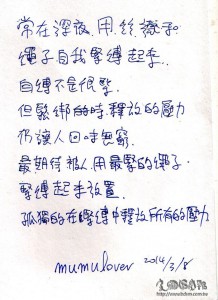 常在深夜.用絲襪和
繩子自我緊縛起來.
自縛不是很緊.
但鬆綁的時.釋放的壓力
仍讓人回味無窮.
最期待被人用最緊的繩子.
緊縛起來放置.
孤獨的在緊縛中釋放所有的壓力
mumulover 2014/3/8